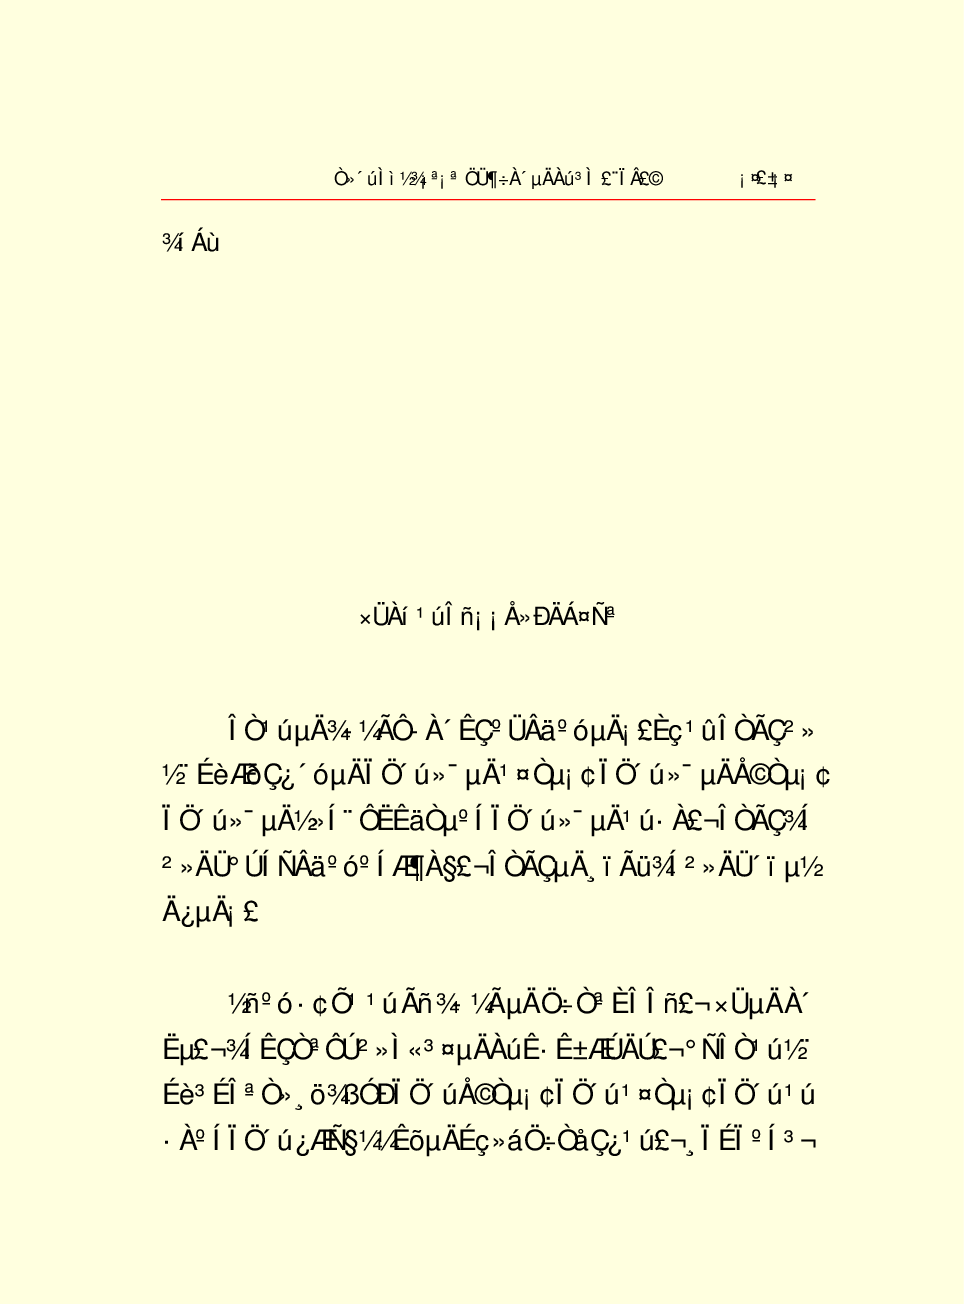 Ò»´úÌì½¾¡ª¡ª ÖÜ¶÷À´µÄÀú³Ì £¨ÏÂ£© ¡¤£±¡¤
¾í Áù
×ÜÀí¹úÎñ¡¡Å»ÐÄÁ¤Ñª
ÎÒ¹úµÄ¾­¼ÃÔ­À´ÊÇºÜÂäºóµÄ¡£Èç¹ûÎÒÃÇ²»
½¨ÉèÆðÇ¿´óµÄÏÖ´ú»¯µÄ¹¤Òµ¡¢ÏÖ´ú»¯µÄÅ©Òµ¡¢
ÏÖ´ú»¯µÄ½»Í¨ÔËÊäÒµºÍÏÖ´ú»¯µÄ¹ú·À£¬ÎÒÃÇ¾Í
²»ÄÜ°ÚÍÑÂäºóºÍÆ¶À§£¬ÎÒÃÇµÄ¸ïÃü¾Í²»ÄÜ´ïµ½
Ä¿µÄ¡£
½ñºó·¢Õ¹¹úÃñ¾­¼ÃµÄÖ÷ÒªÈÎÎñ£¬×ÜµÄÀ´
Ëµ£¬¾ÍÊÇÒªÔÚ²»Ì«³¤µÄÀúÊ·Ê±ÆÚÄÚ£¬°ÑÎÒ¹ú½¨
Éè³ÉÎªÒ»¸ö¾ßÓÐÏÖ´úÅ©Òµ¡¢ÏÖ´ú¹¤Òµ¡¢ÏÖ´ú¹ú
·ÀºÍÏÖ´ú¿ÆÑ§¼¼ÊõµÄÉç»áÖ÷ÒåÇ¿¹ú£¬¸ÏÉÏºÍ³¬